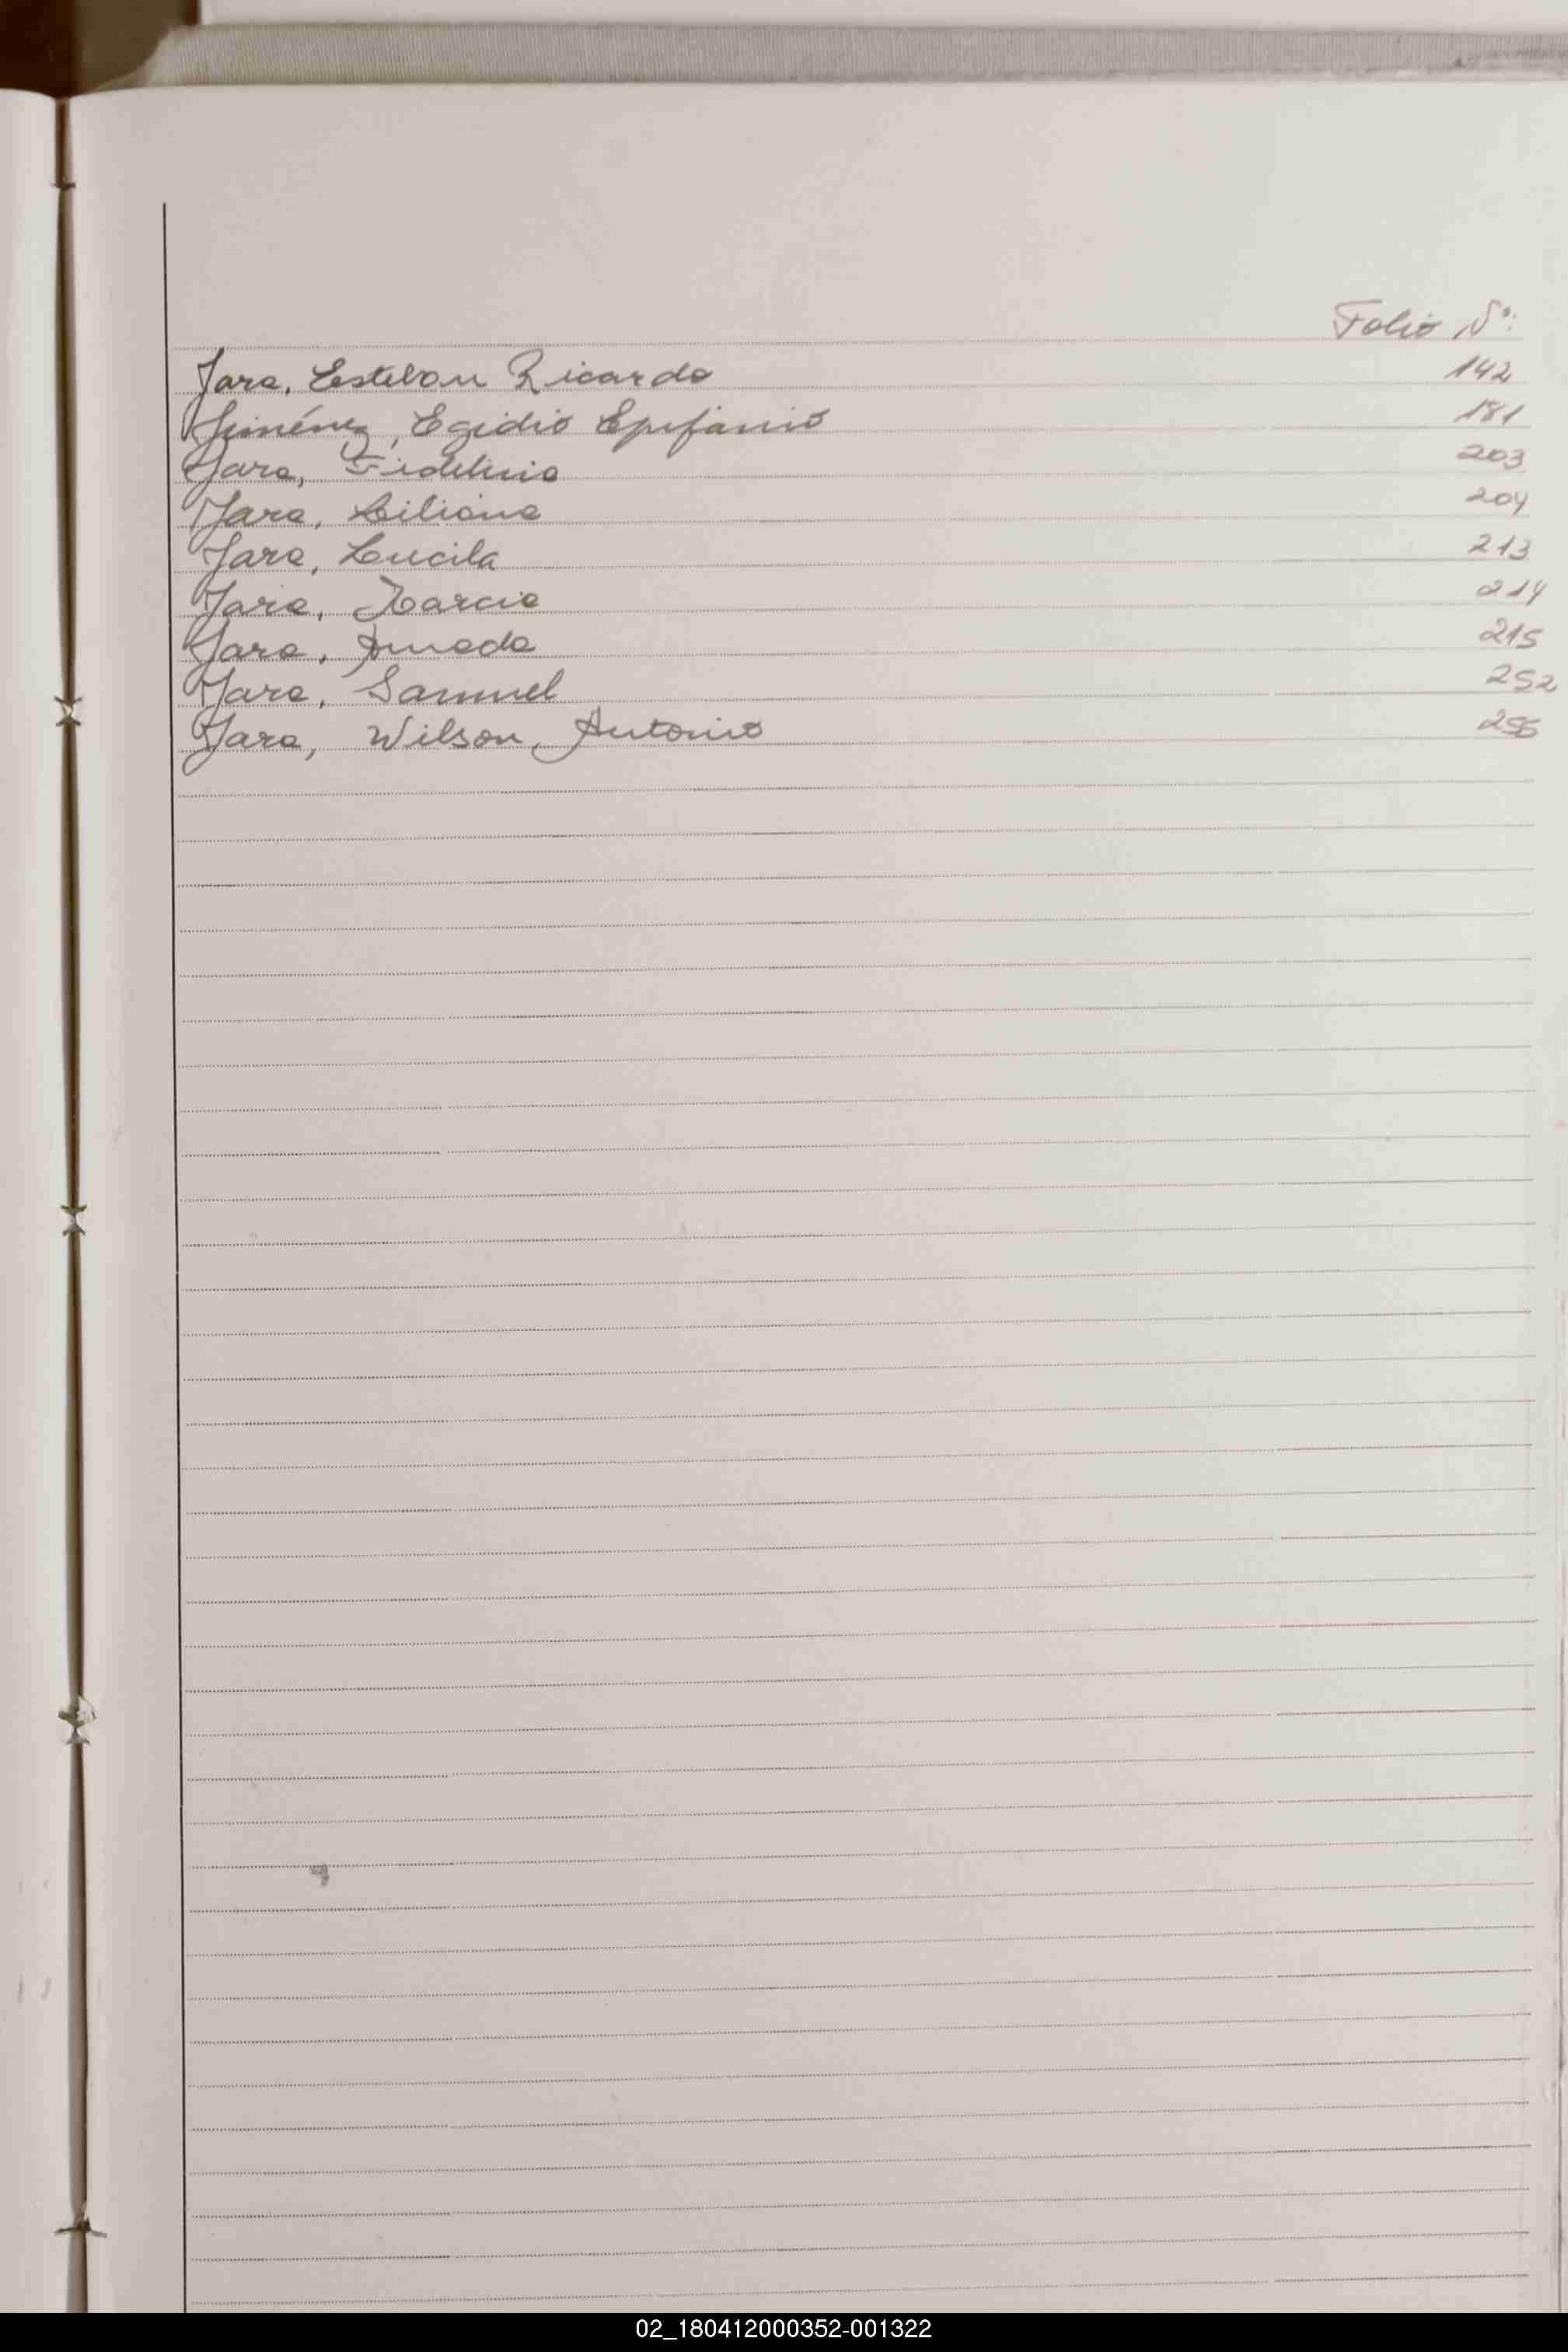 Folio Nº:
Jara, Esteban Ricardo 142
Jiménez, Egidio Epifanio 181
Jara, Fidelina 203
Jara, Liliana 204
Jara, Lucila 213
Jara, Marcia 214
Jara, Amada 215
Jara, Samuel 252
Jara, Wilson Antonio
02_180412000352-001322